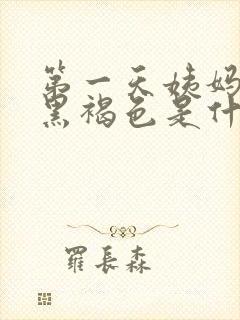 第一天姨妈
黑褐色是什
羅長森